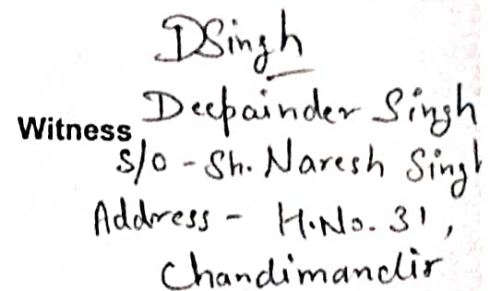 DSingh
Witness Deepainder Singh
S/o - Sh. Naresh Singh
Address - H.No. 31,
Chandimandir